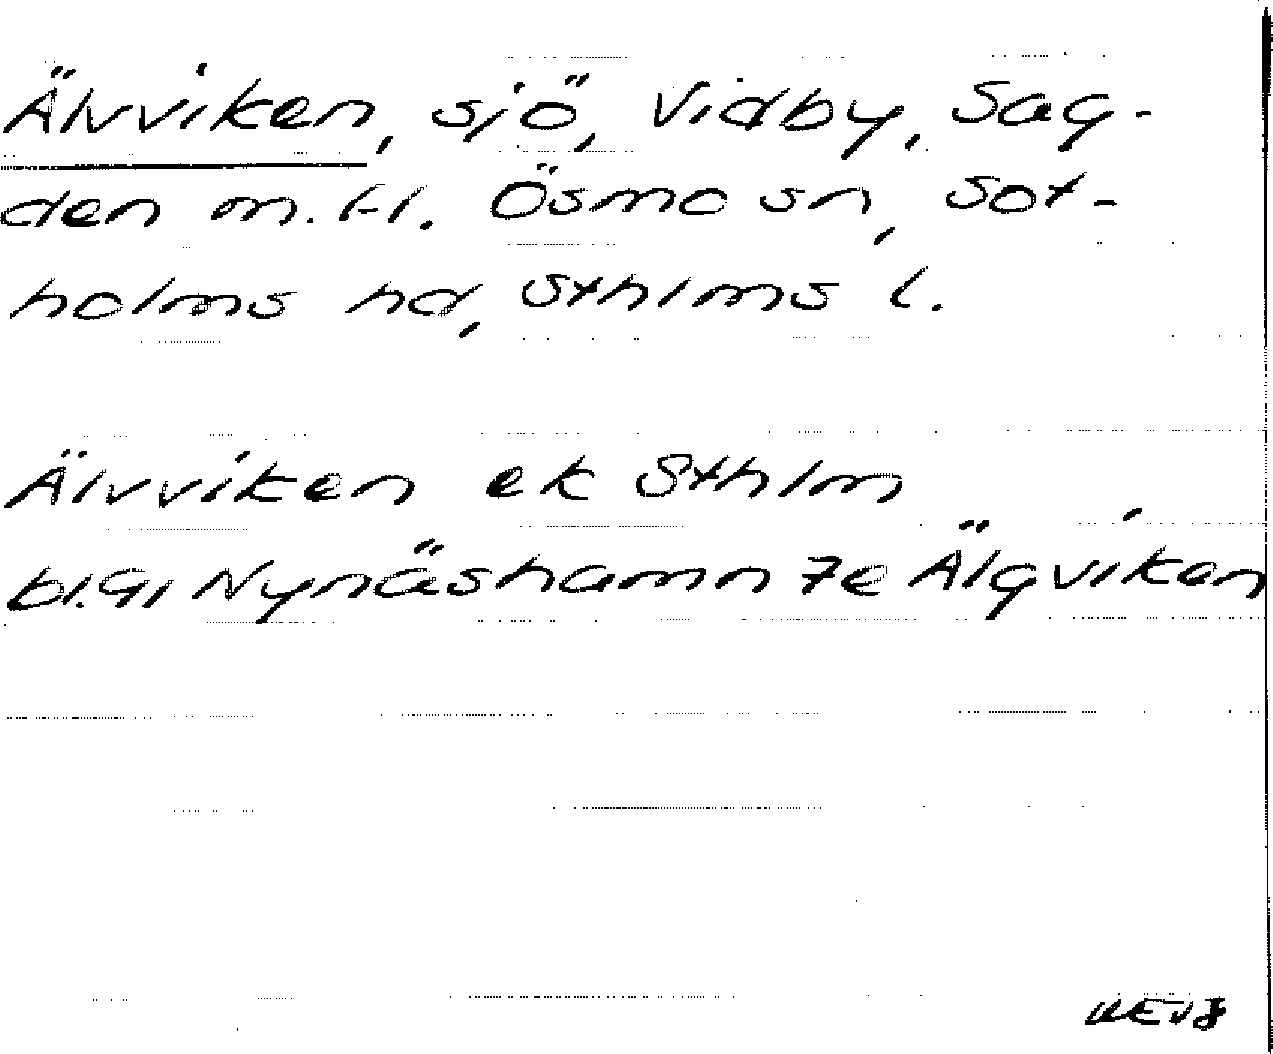 Älvviken, sjö, Vidby, Sag-
den m.fl. Ösmo sn, Sot-
holms hd, Sthlms l.
Älvviken ek Sthlm
bl.91 Nynäshamn 7e Älgviken